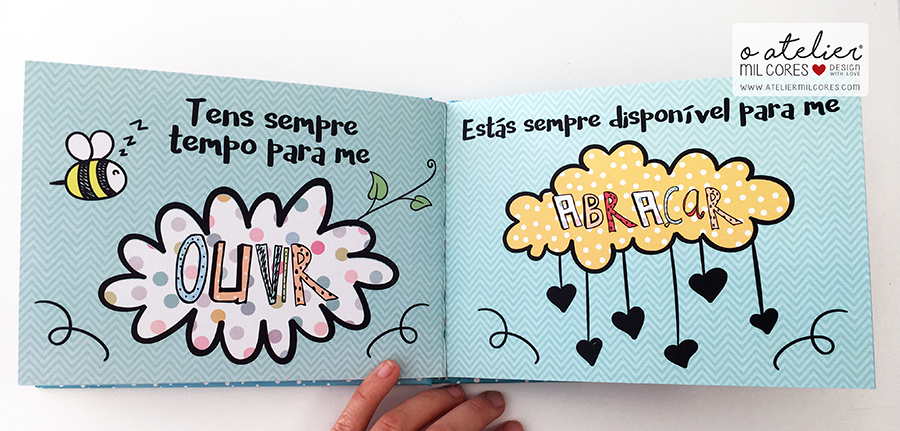 o atelier®
MIL CORES DESIGN
WITH LOVE
WWW.ATELIERMILCORES.COM
Tens sempre
tempo para me
OUVIR
Estás sempre disponível para me
ABRAÇAR